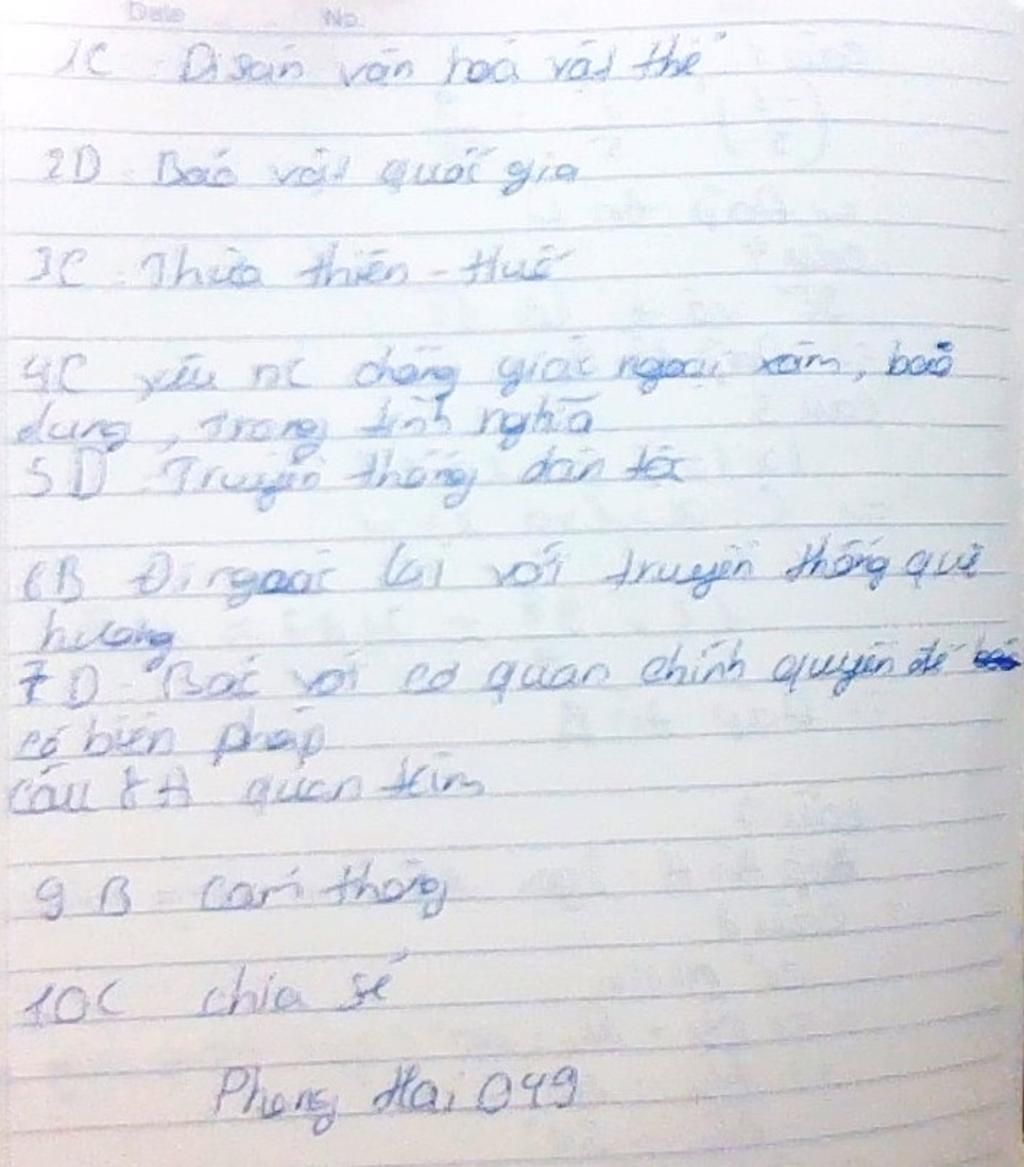 Date No.
1C Di sản văn hoá vật thể
2D Bảo vật quốc gia
3C Thừa thiên - Huế
4C yêu nc chống giặc ngoại xâm, bao
dung, trọng tình nghĩa
5D Truyền thống dân tộc
6B Đi ngược lại với truyền thống quê
hương
7D Báo với cơ quan chính quyền để
có biện pháp
câu 8A quan tâm
9B cảm thông
10C chia sẻ
Phong Hai 049